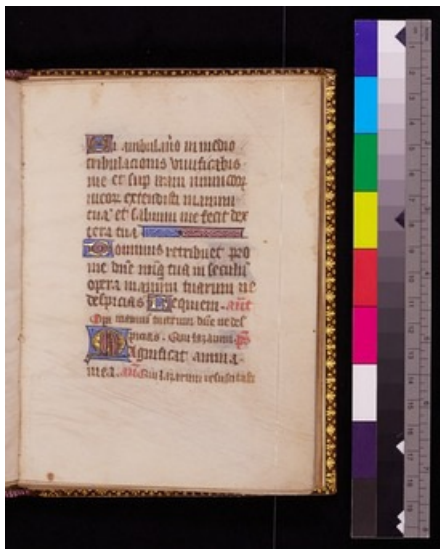 Si ambulav̄o in medio
tribulacionis vivificabis
me et sup iram inimicoꝝ
meoꝝ extendisti manum
tuā et salvum me fecit dex
tera tua
Dominus retribuet pro
me dn̄e mīa tua in seculū
opera manuum tuarum ne
despicias Requiem. añt
Opera manuum tuarum dn̄e ne des
picias. Qui lazarum. pš
Magnificat anima
mea. añ. Qui lazarum resuscitasti